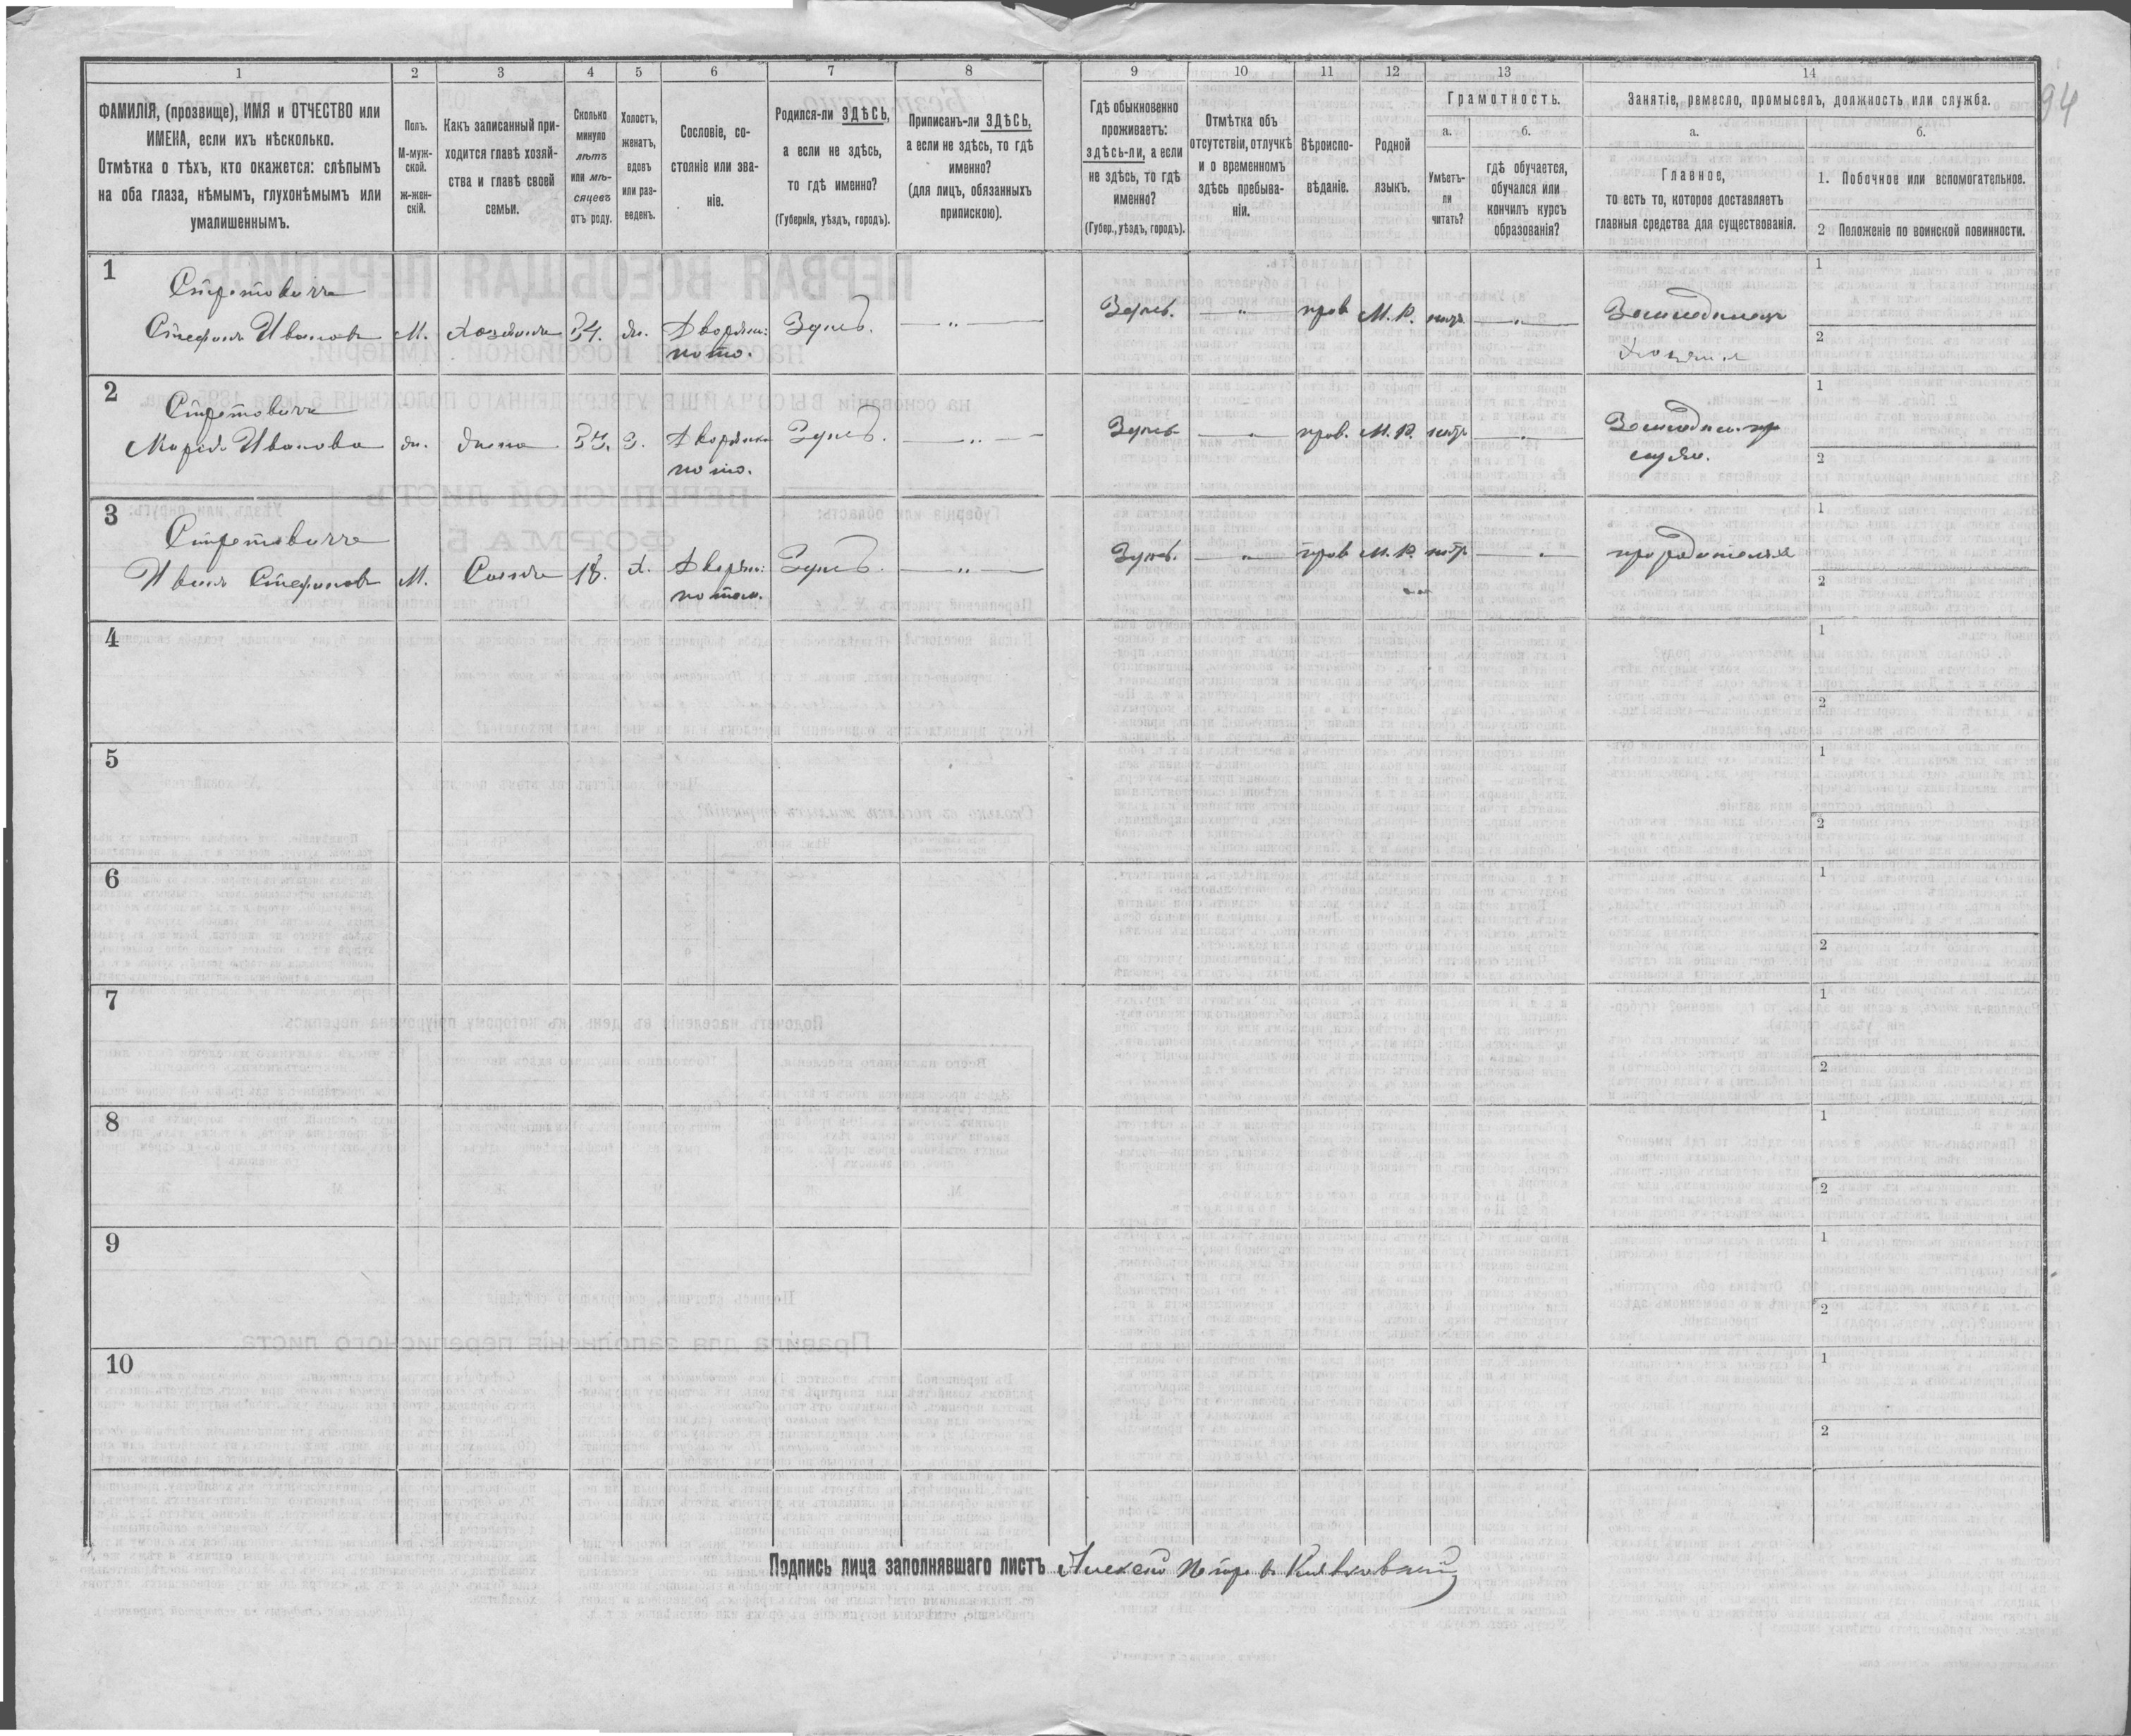 94
1 2 3 4 5 6 7 8 9 10 11 12 13 14
ФАМИЛІЯ, (прозвище), ИМЯ и ОТЧЕСТВО или
ИМЕНА, если ихъ нѣсколько.
Отмѣтка о тѣхъ, кто окажется: слѣпымъ
на оба глаза, нѣмымъ, глухонѣмымъ или
умалишеннымъ.
Полъ.
М-муж-
ской.
ж-жен-
скій.
Какъ записанный при-
ходится главѣ хозяй-
ства и главѣ своей
семьи.
Сколько
минуло
лѣтъ
или мѣ-
сяцевъ
отъ роду.
Холостъ,
женатъ,
вдовъ
или раз-
веденъ.
Сословіе, со-
стояніе или зва-
ніе.
Родился-ли ЗДѢСЬ,
а если не здѣсь,
то гдѣ именно?
(Губернія, уѣздъ, городъ).
Приписанъ-ли ЗДѢСЬ,
а если не здѣсь, то гдѣ
именно?
(для лицъ, обязанныхъ
припискою).
Гдѣ обыкновенно
проживаетъ:
здѣсь-ли, а если
не здѣсь, то гдѣ
именно?
(Губер., уѣздъ, городъ).
Отмѣтка объ
отсутствіи, отлучкѣ
и о временномъ
здѣсь пребыва-
ніи.
Вѣроиспо-
вѣданіе.
Родной
языкъ.
Грамотность.
а.
Умѣетъ-
ли
читать?
б.
гдѣ обучается,
обучался или
кончилъ курсъ
образованія?
Занятіе, ремесло, промыселъ, должность или служба.
а.
Главное,
то есть то, которое доставляетъ
главныя средства для существованія.
б.
1. Побочное или вспомогательное.
2 Положеніе по воинской повинности.
1
Стефанъ Ивановъ М. Хозяинъ 54. Дворян: Здѣсь. — „ — Здѣсь. — „ — прав М. Р. — „ — Земледѣлецъ
хозяинъ
1
2
2
Марія Иванова жн. жена З. Дворянка Здѣсь. — „ — Здѣсь — „ — прав. М. Р. — „ —
1
2
3
Иванъ Стефановъ М. Сынъ 18. Х. Дворян: Здѣсь. — „ — Здѣсь. — „ — прав М. Р. — „ — при родителяхъ
потом.
1
2
4
1
2
5
1
2
6
1
2
7
1
2
8
1
2
9
1
2
10
1
2
Подпись лица заполнявшаго листъ Алексѣй